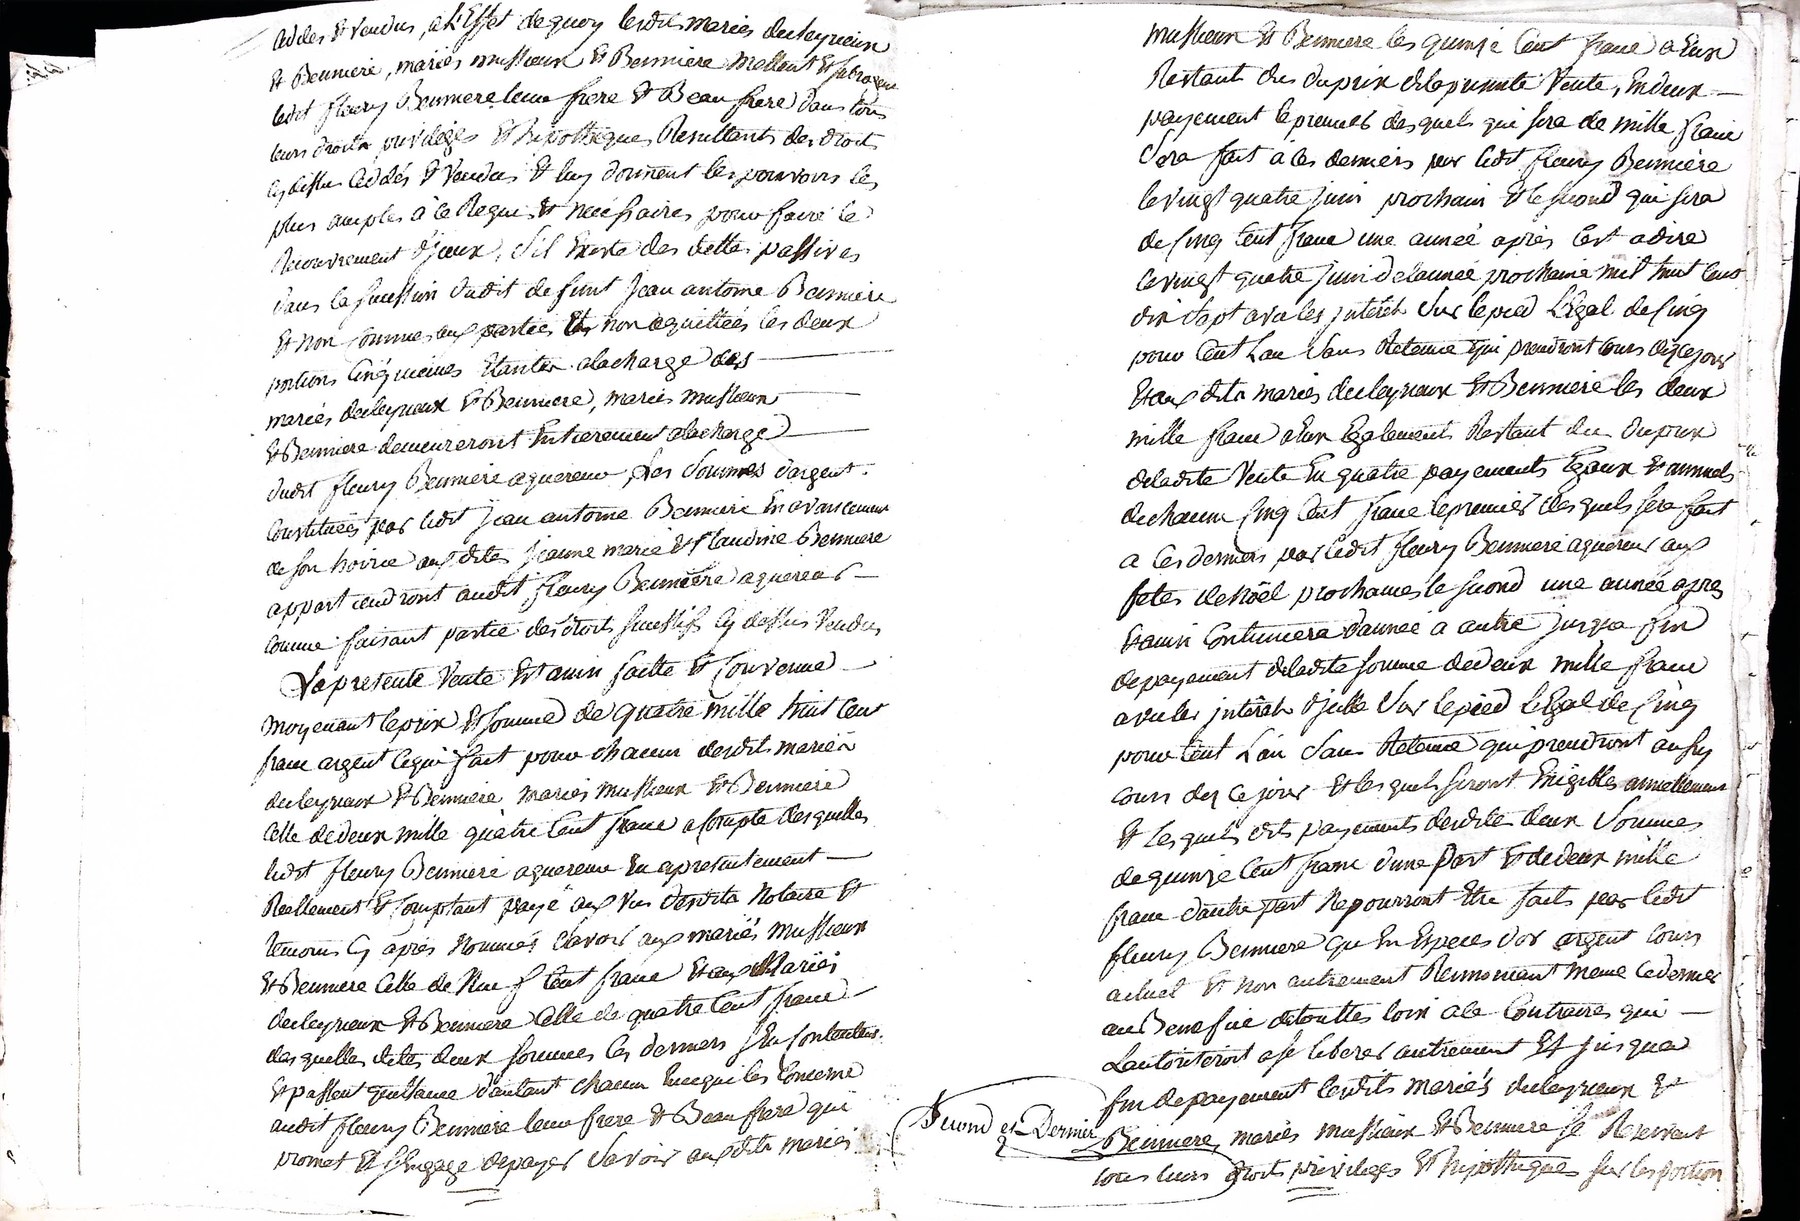 cedés et vendus, a l'Effet de quoy lesdits mariés duleyrieux
et Bennière, mariés mussieux et Bennière mettent et subrogent
ledit fleury Benniere leur frere et Beau frere dans tous
leurs droits privilèges et hipothèques Resultants des droits
cy dessus cedés et Vendus et luy donnent les pouvoirs les
plus amples à ce Requis et nécéssaires pour faire le
Recouvrement d'jceux, s'il Existe des dettes passives
dans la succession dudit defunt Jean antoine Bennière
et non connues aux parties et non aquittées les deux
portions cinquiemes étantes à la charge des
mariés duleyrieux et Benniere, mariés mussieux
et Benniere demeureront Entierement a la charge
dudit fleury Benniere aquereur, Les Sommes d'argent
constituées par ledit jean antoine Benniere En avancement
de son hoirie aux dites jeanne marie et Claudine Benniere
appartiendront audit fleury Bennière aquereur
comme faisant partie des droits successifs cy dessus Vendus
La presente Vente Est ainsi faitte et Convenue
moyenant le prix et somme de quatre mille huit cent
franc argent ce qui fait pour chacun desdits mariés
duleyrieux et Benniere mariés mussieux et Benniere
Celle de deux mille quatre Cent franc a compte desquelles
ledit fleury Benniere aquereur En a presentement
Reellement et Comptant payé aux vus desdits Notaire et
temoins cy après Nommés Savoir aux mariés mussieux
et Benniere Celle de Neuf Cent franc et aux Mariés
duleyrieux et Benniere Celle de quatre Cent franc
des quelles dites deux sommes ces derniers s'En contentent
et passent quittance d'autant chacun En ce qui les Concerne
audit fleury Benniere leur frere et Beau frere qui
promet et s'Engage de payer Savoir aux dits mariés
mussieux et Benniere les quinze Cent franc a Eux
Restant dus du prix de la presente Vente, En deux
payement le premier des quels qui sera de mille franc
sera fait à ces derniers par ledit fleury Bennière
le vingt quatre juin prochain et le second qui sera
de cinq Cent franc une année après C'est a dire
le vingt quatre juin de l'année prochaine mil huit cent
dix sept avec les jntérêts Sur le pied Légal de cinq
pour Cent L'an Sans Retenue qui prendront Cours dez ce jour
et aux dits mariés duleyrieux et Benniere les deux
mille franc a Eux Egalement Restant dus du prix
de la dite Vente En quatre payements Egaux et annuels
de chacun cinq Cent franc le premier des quels sera fait
a ces derniers par ledit fleury Benniere aquereur aux
fetes de Noël prochaines le second une année apres
et ainsi Continuera d'année à autre jusqua fin
de payement de la dite somme de deux mille franc
avec les jntérêts d'jcelle Sur le pied Légal de Cinq
pour Cent L'an Sans Retenue qui prendront aussy
cours dez ce jour et les quels seront Exigibles annuellement
et les quels dits payements desdites deux Sommes
de quinze Cent franc d'une part et de deux mille
franc d'autre part Ne pourront Etre faits par ledit
fleury Benniere qu'En Especes d'or argent cours
actuel et Non autrement Renoncant même ce dernier
au Benefice de touttes loix a ce Contraires qui
L'autoriseroit a se liberer autrement et jusqua
fin de payement lesdits mariés duleyrieux et
Second et Dernier
2
Benniere, mariés mussieux et Benniere se Reservent
tous leurs droits privileges et hipothèques sur les portion